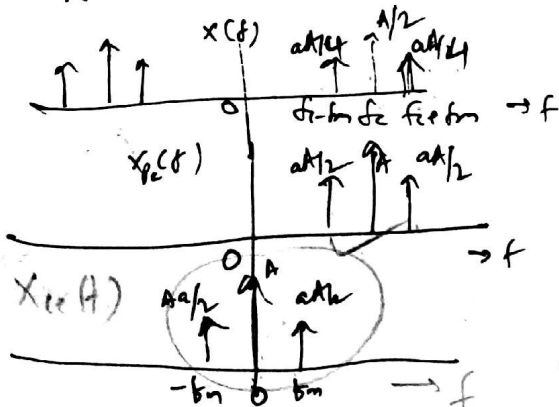 X(f) aA/4 A/2 aA/4
0 fc-fm fc fc+fm → f
Xpe(f) aA/2 A aA/2
0 → f
Xce(f) Aa/2 A aA/2
-fm 0 fm → f